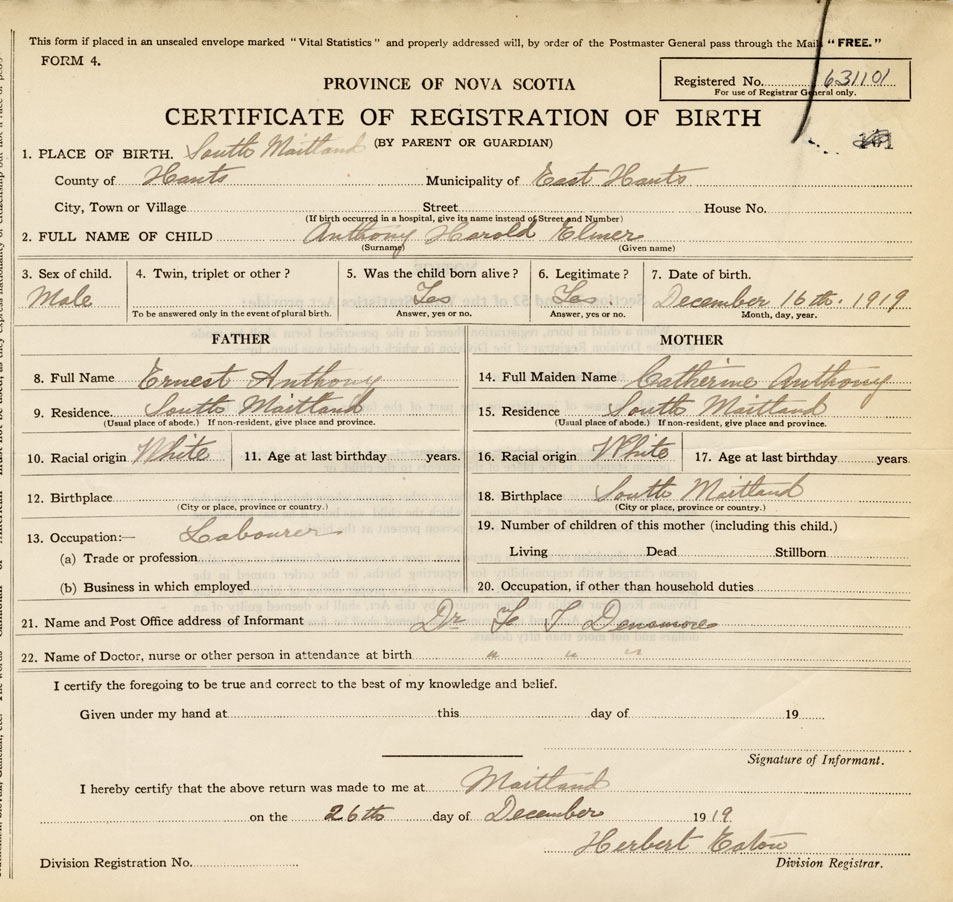 This form if placed in an unsealed envelope marked "Vital Statistics" and properly addressed will, by order of the Postmaster General pass through the Mail "FREE."
FORM 4.
Registered No. 631101
For use of Registrar General only.
PROVINCE OF NOVA SCOTIA
CERTIFICATE OF REGISTRATION OF BIRTH
(BY PARENT OR GUARDIAN)
1. PLACE OF BIRTH. South Maitland
County of Hants Municipality of East Hants
City, Town or Village Street House No.
(If birth occurred in a hospital, give its name instead of Street and Number)
2. FULL NAME OF CHILD Anthony Harold Elmer
(Surname) (Given name)
3. Sex of child. 4. Twin, triplet or other? 5. Was the child born alive? 6. Legitimate? 7. Date of birth.
Male Yes Yes December 16th. 1919
To be answered only in the event of plural birth. Answer, yes or no. Answer, yes or no. Month, day, year.
FATHER MOTHER
8. Full Name Ernest Anthony 14. Full Maiden Name Catherine Anthony
9. Residence. South Maitland 15. Residence South Maitland
(Usual place of abode.) If non-resident, give place and province. (Usual place of abode.) If non-resident, give place and province.
10. Racial origin White 11. Age at last birthday years. 16. Racial origin White 17. Age at last birthday years.
12. Birthplace 18. Birthplace South Maitland
(City or place, province or country.) (City or place, province or country.)
13. Occupation:— Labourer 19. Number of children of this mother (including this child.)
(a) Trade or profession Living Dead Stillborn
(b) Business in which employed 20. Occupation, if other than household duties
21. Name and Post Office address of Informant Dr
22. Name of Doctor, nurse or other person in attendance at birth " " "
I certify the foregoing to be true and correct to the best of my knowledge and belief.
Given under my hand at this day of 19
Signature of Informant.
I hereby certify that the above return was made to me at Maitland
on the 26th day of December 1919.
Herbert Eaton
Division Registration No. Division Registrar.